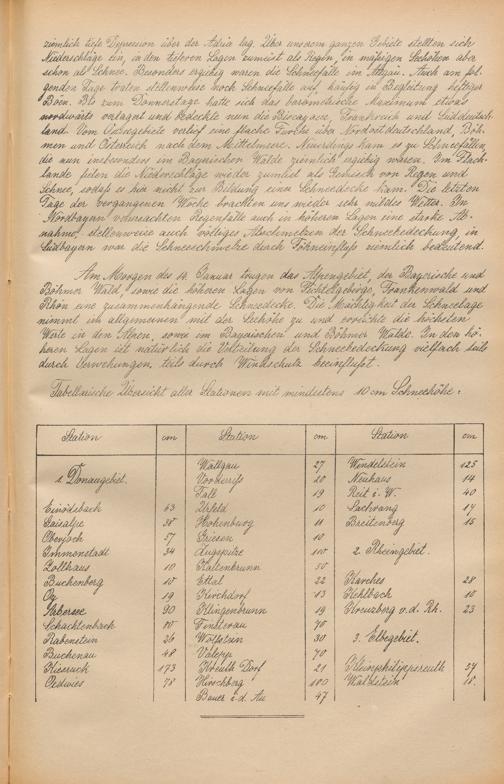 ziemlich tiefe Depression über der Adria lag. Über unserem ganzen Gebiete stellten sich
Niederschläge ein, in den tieferen Lagen zumeist als Regen, in mäßigen Seehöhen aber
schon als Schnee. Besonders ergiebig waren die Schneefälle im Allgäu. Auch am fol-
genden Tage traten stellenweise noch Schneefälle auf, häufig in Begleitung heftiger
Böen. Bis zum Donnerstage hatte sich das barometrische Maximum etwas
nordwärts verlagert und bedeckte nun die Biscayasee, Frankreich und Süddeutsch-
land. Vom Ostseegebiete verlief eine flache Furche über Nordostdeutschland, Böh-
men und Österreich nach dem Mittelmeere. Neuerdings kam es zu Schneefällen,
die nun insbesondere im Bayerischen Walde ziemlich ergiebig waren. Im Flach-
lande fielen die Niederschläge wieder zumeist als Gemisch von Regen und
Schnee, sodaß es hier nicht zur Bildung einer Schneedecke kam. Die letzten
Tage der vergangenen Woche brachten uns wieder sehr mildes Wetter. In
Nordbayern verursachten Regenfälle auch in höheren Lagen eine starke Ab-
nahme, stellenweise auch völliges Abschmelzen der Schneebedeckung, in
Südbayern war die Schneeschmelze durch Föhneinfluß ziemlich bedeutend.
Am Morgen des 14. Januar trugen das Alpengebiet, der Bayerische und
Böhmer Wald, sowie die höheren Lagen von Fichtelgebirge, Frankenwald und
Rhön eine zusammenhängende Schneedecke. Die Mächtigkeit der Schneelage
nimmt im allgemeinen mit der Seehöhe zu und erreichte die höchsten
Werte in den Alpen, sowie im Bayerischen und Böhmer Walde. In den hö-
heren Lagen ist natürlich die Verteilung der Schneebedeckung vielfach teils
durch Verwehungen, teils durch Windschutz beeinflußt.
Tabellarische Übersicht aller Stationen mit mindestens 10 cm Schneehöhe:
Station cm Station cm Station cm
1. Donaugebiet.
Einödsbach 63
Gaisalpe
Oberjoch 57
Immenstadt 34
Zollhaus 10
Buchenberg 10
Oy 19
90
Schachtenbach
Rabenstein 26
Buchenau 48
173
78
Wallgau 27
Vorderriß 20
Fall 19
Urfeld 10
Hohenburg 11
Griesen 10
Zugspitze
Kaltenbrunn
Ettal 22
Kirchdorf 13
Klingenbrunn 19
Finsterau
Wolfstein 30
Valepp 70
Kreuth Dorf 21
Hirschberg 180
Bauer i. d. Au 47
Wendelstein 125
Neuhaus 14
Reit i. W. 40
Sachrang
Breitenberg 15
2. Rheingebiet.
Karches 28
10
Kreuzberg v. d. Rh. 23
3. Elbegebiet.
Kleinphilippsreuth
Waldstein 18